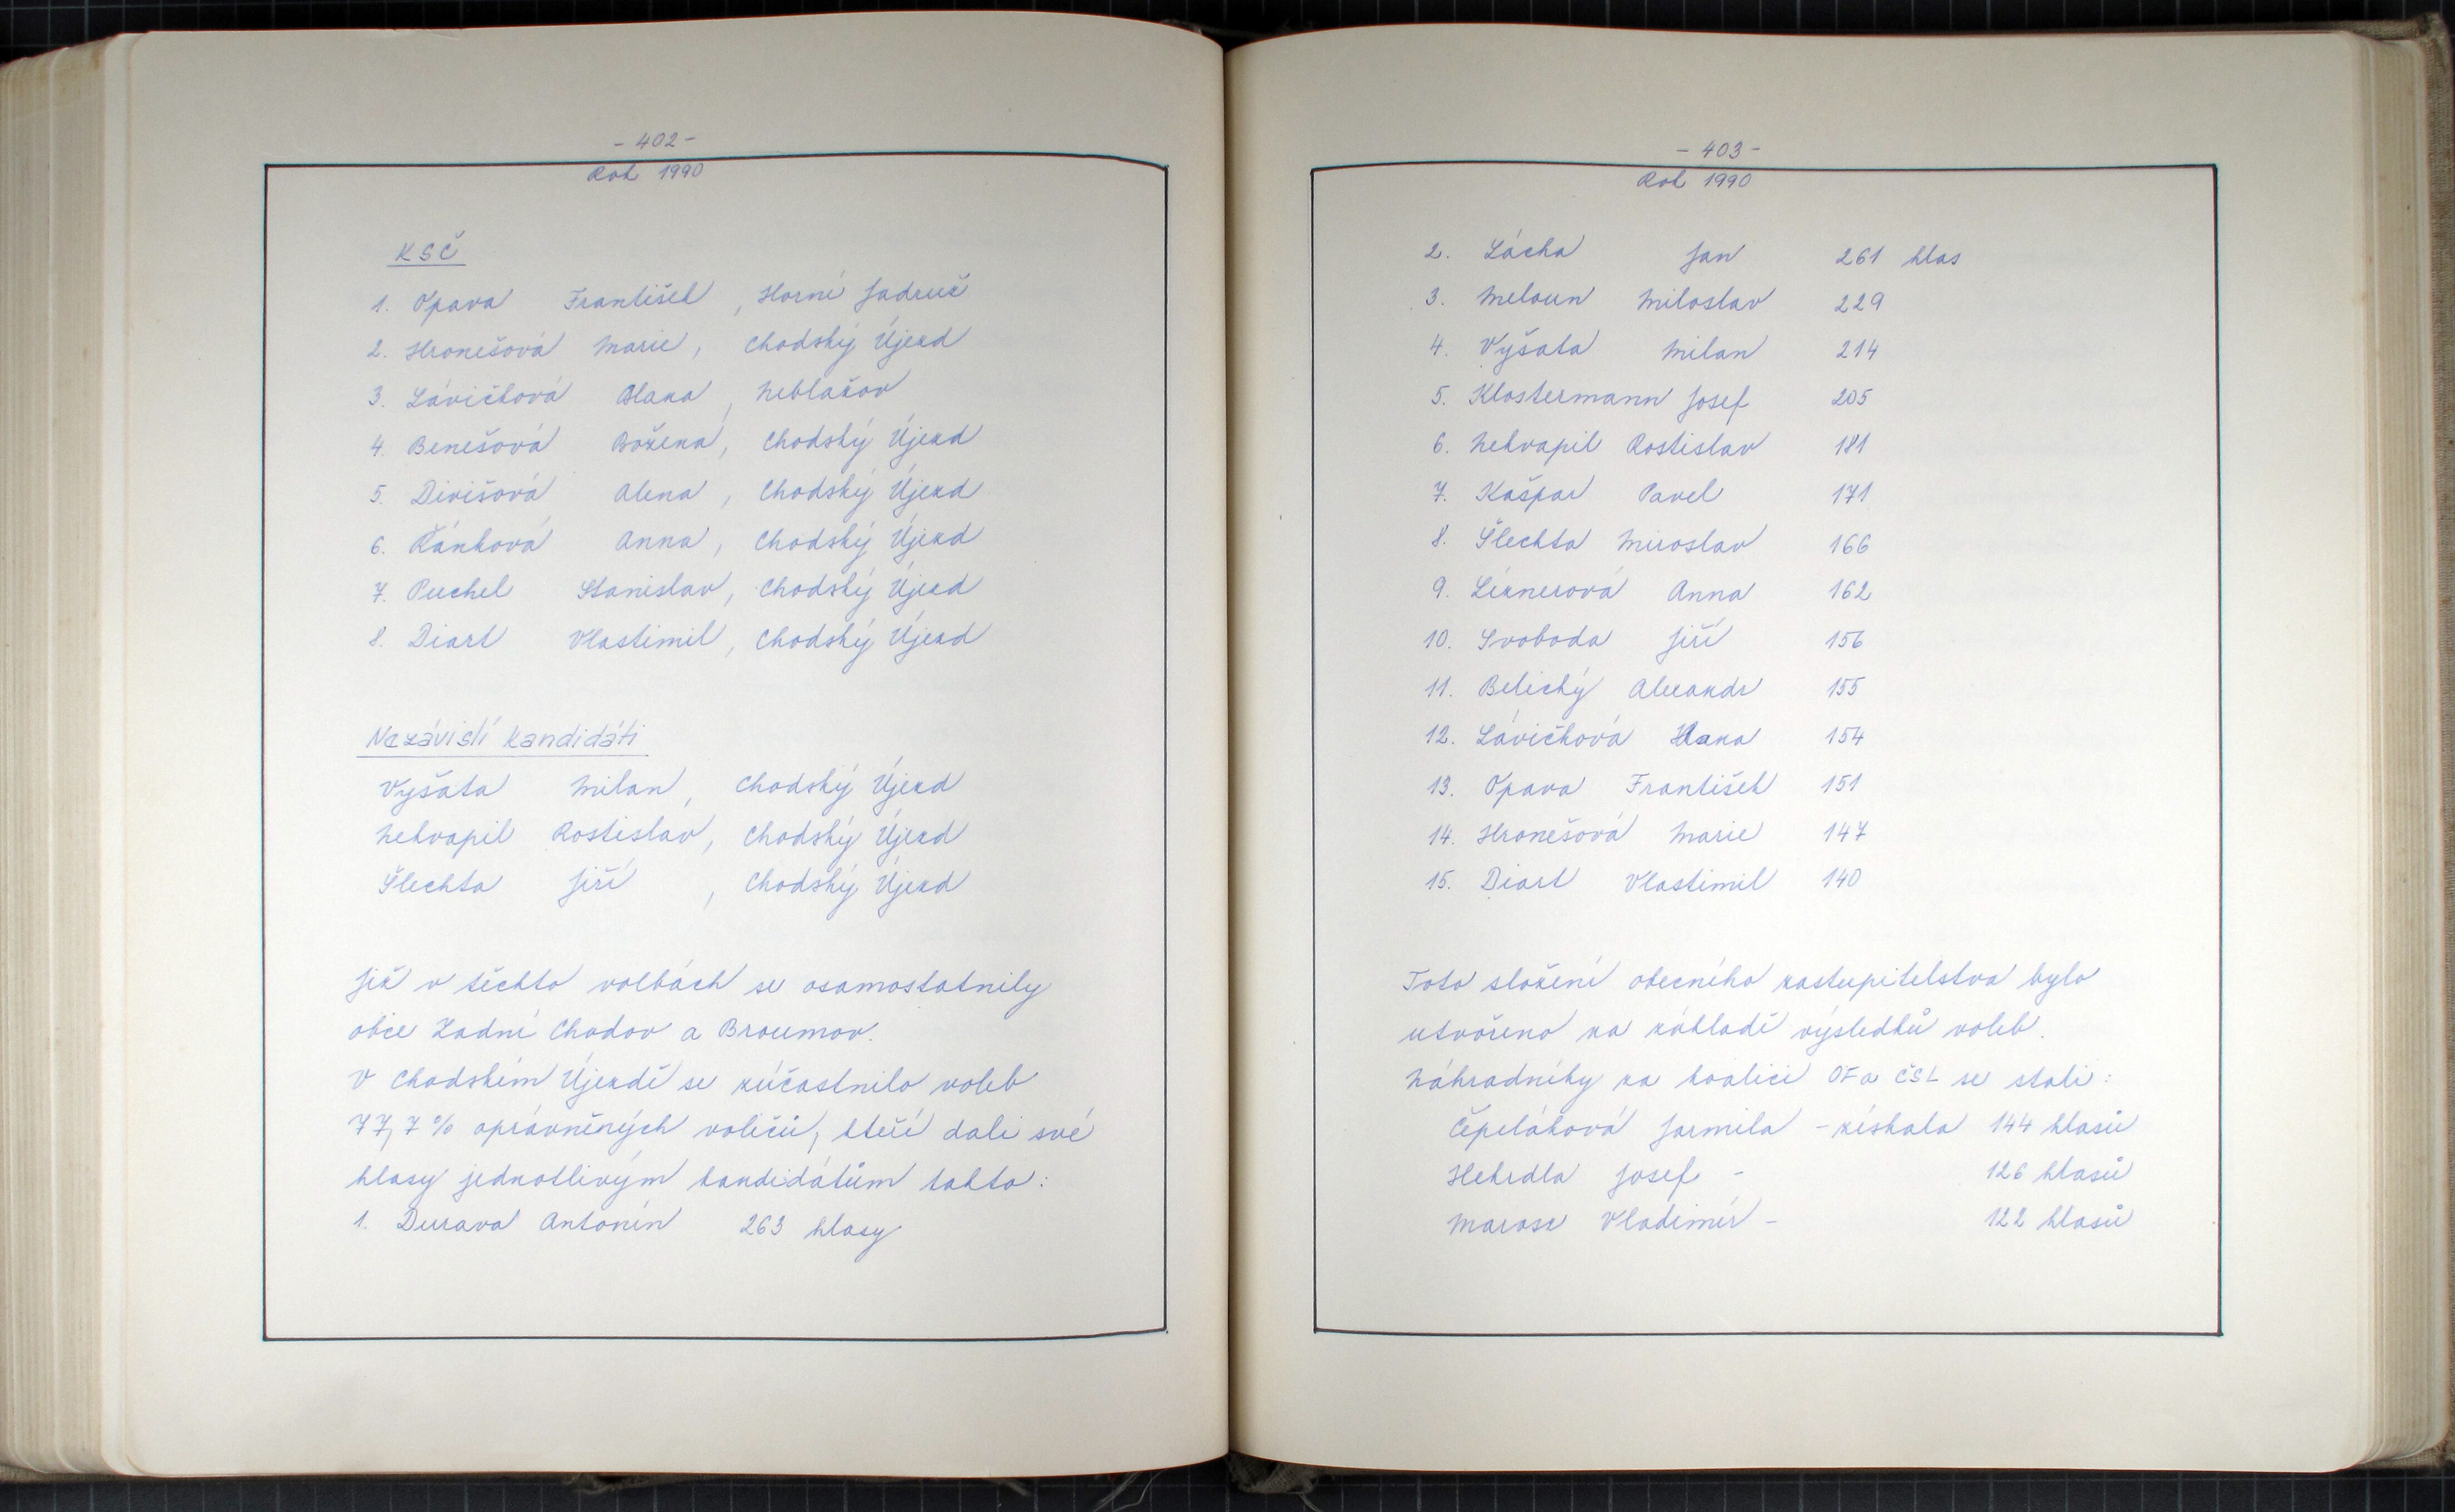 - 402 -
Rok 1990
KSČ
1. Opava František, Horní Jadruž
2. Hronešová Marie, Chodský Újezd
3. Lávičková Hana, Neblažov
4. Benešová Božena, Chodský Újezd
5. Divišová Alena, Chodský Újezd
6. Řánková Anna, Chodský Újezd
7. Puchel Stanislav, Chodský Újezd
8. Diart Vlastimil, Chodský Újezd
Nezávislí kandidáti
Vyšata Milan, Chodský Újezd
Nekvapil Rostislav, Chodský Újezd
Šlechta Jiří, Chodský Újezd
Již v těchto volbách se osamostatnily
obce Zadní Chodov a Broumov.
V Chodském Újezdě se zúčastnilo voleb
77,7 % oprávněných voličů, kteří dali své
hlasy jednotlivým kandidátům takto:
1. Durava Antonín 263 hlasy
- 403 -
Rok 1990
2. Lácha Jan 261 hlas
3. Meloun Miloslav 229
4. Vyšata Milan 214
5. Klostermann Josef 205
6. Nekvapil Rostislav 181
7. Kašpar Pavel 171
8. Šlechta Miroslav 166
9. Léxnerová Anna 162
10. Svoboda Jiří 156
11. Belický Alexandr 155
12. Lávičková Hana 154
13. Opava František 151
14. Hronešová Marie 147
15. Diart Vlastimil 140
Toto složení obecního zastupitelstva bylo
utvořeno na základě výsledků voleb.
Náhradníky za koalici OF a ČSL se stali:
Čepeláková Jarmila - získala 144 hlasů
Hehrdla Josef - 126 hlasů
Marosz Vladimír - 122 hlasů